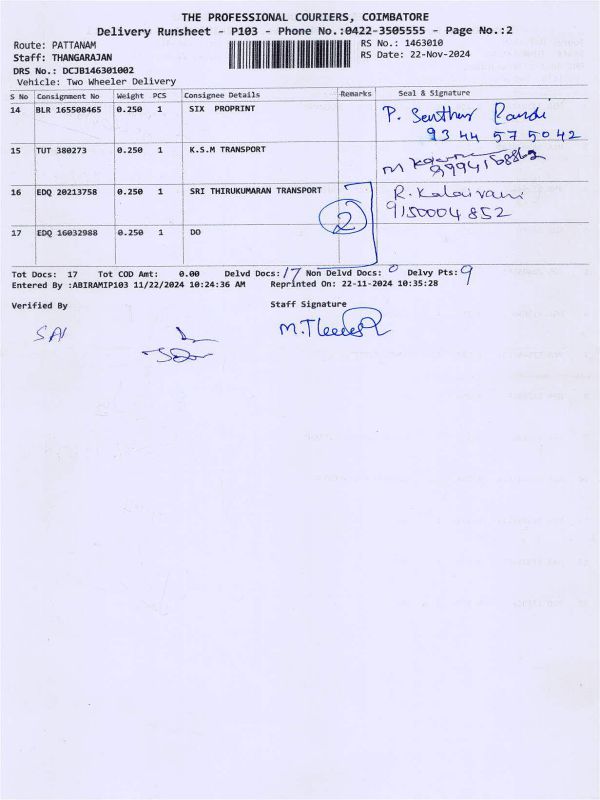 THE PROFESSIONAL COURIERS, COIMBATORE
Delivery Runsheet - P103 - Phone No.:0422-3505555 - Page No.:2
Route: PATTANAM
RS No.: 1463010
Staff: THANGARAJAN
RS Date: 22-Nov-2024
DRS No.: DCJB146301002
Vehicle: Two Wheeler Delivery
S No Consignment No Weight PCS Consignee Details Remarks Seal & Signature
14 BLR 165508465 0.250 1 SIX PROPRINT P. Senthur Pandi
9344575042
15 TUT 380273 0.250 1 K.S.M TRANSPORT
16 EDQ 20213758 0.250 1 SRI THIRUKUMARAN TRANSPORT R. Kalaivani
2 9150004852
17 EDQ 16032988 0.250 1 DO
Tot Docs: 17 Tot COD Amt: 0.00 Delvd Docs: 17 Non Delvd Docs: 0 Delvy Pts: 9
Entered By :ABIRAMIP103 11/22/2024 10:24:36 AM Reprinted On: 22-11-2024 10:35:28
Verified By Staff Signature